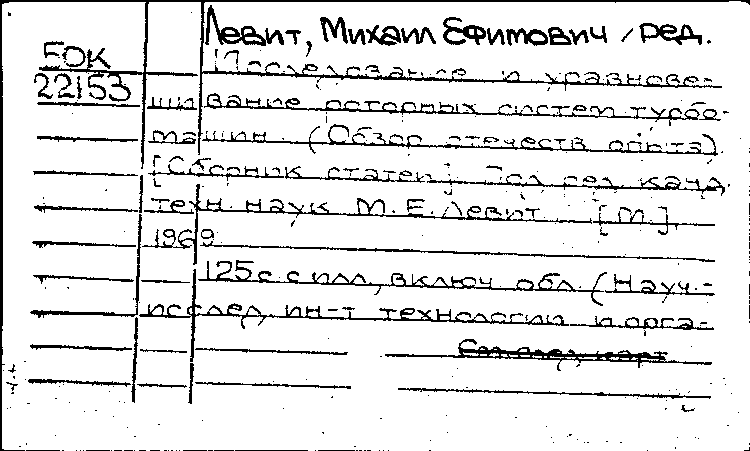 Левит, Михаил Ефимович, ред.
БОК
22153
Исследование и уравнове-
шивание роторных систем турбо-
машин. (Обзор отечеств. опыта).
[Сборник статей]. Под ред. канд.
техн. наук М. Е. Левит. [М.],
1969
125 с. с илл., включ. обл. (Науч.-
исслед. ин-т технологии и орга-
См. след. карт